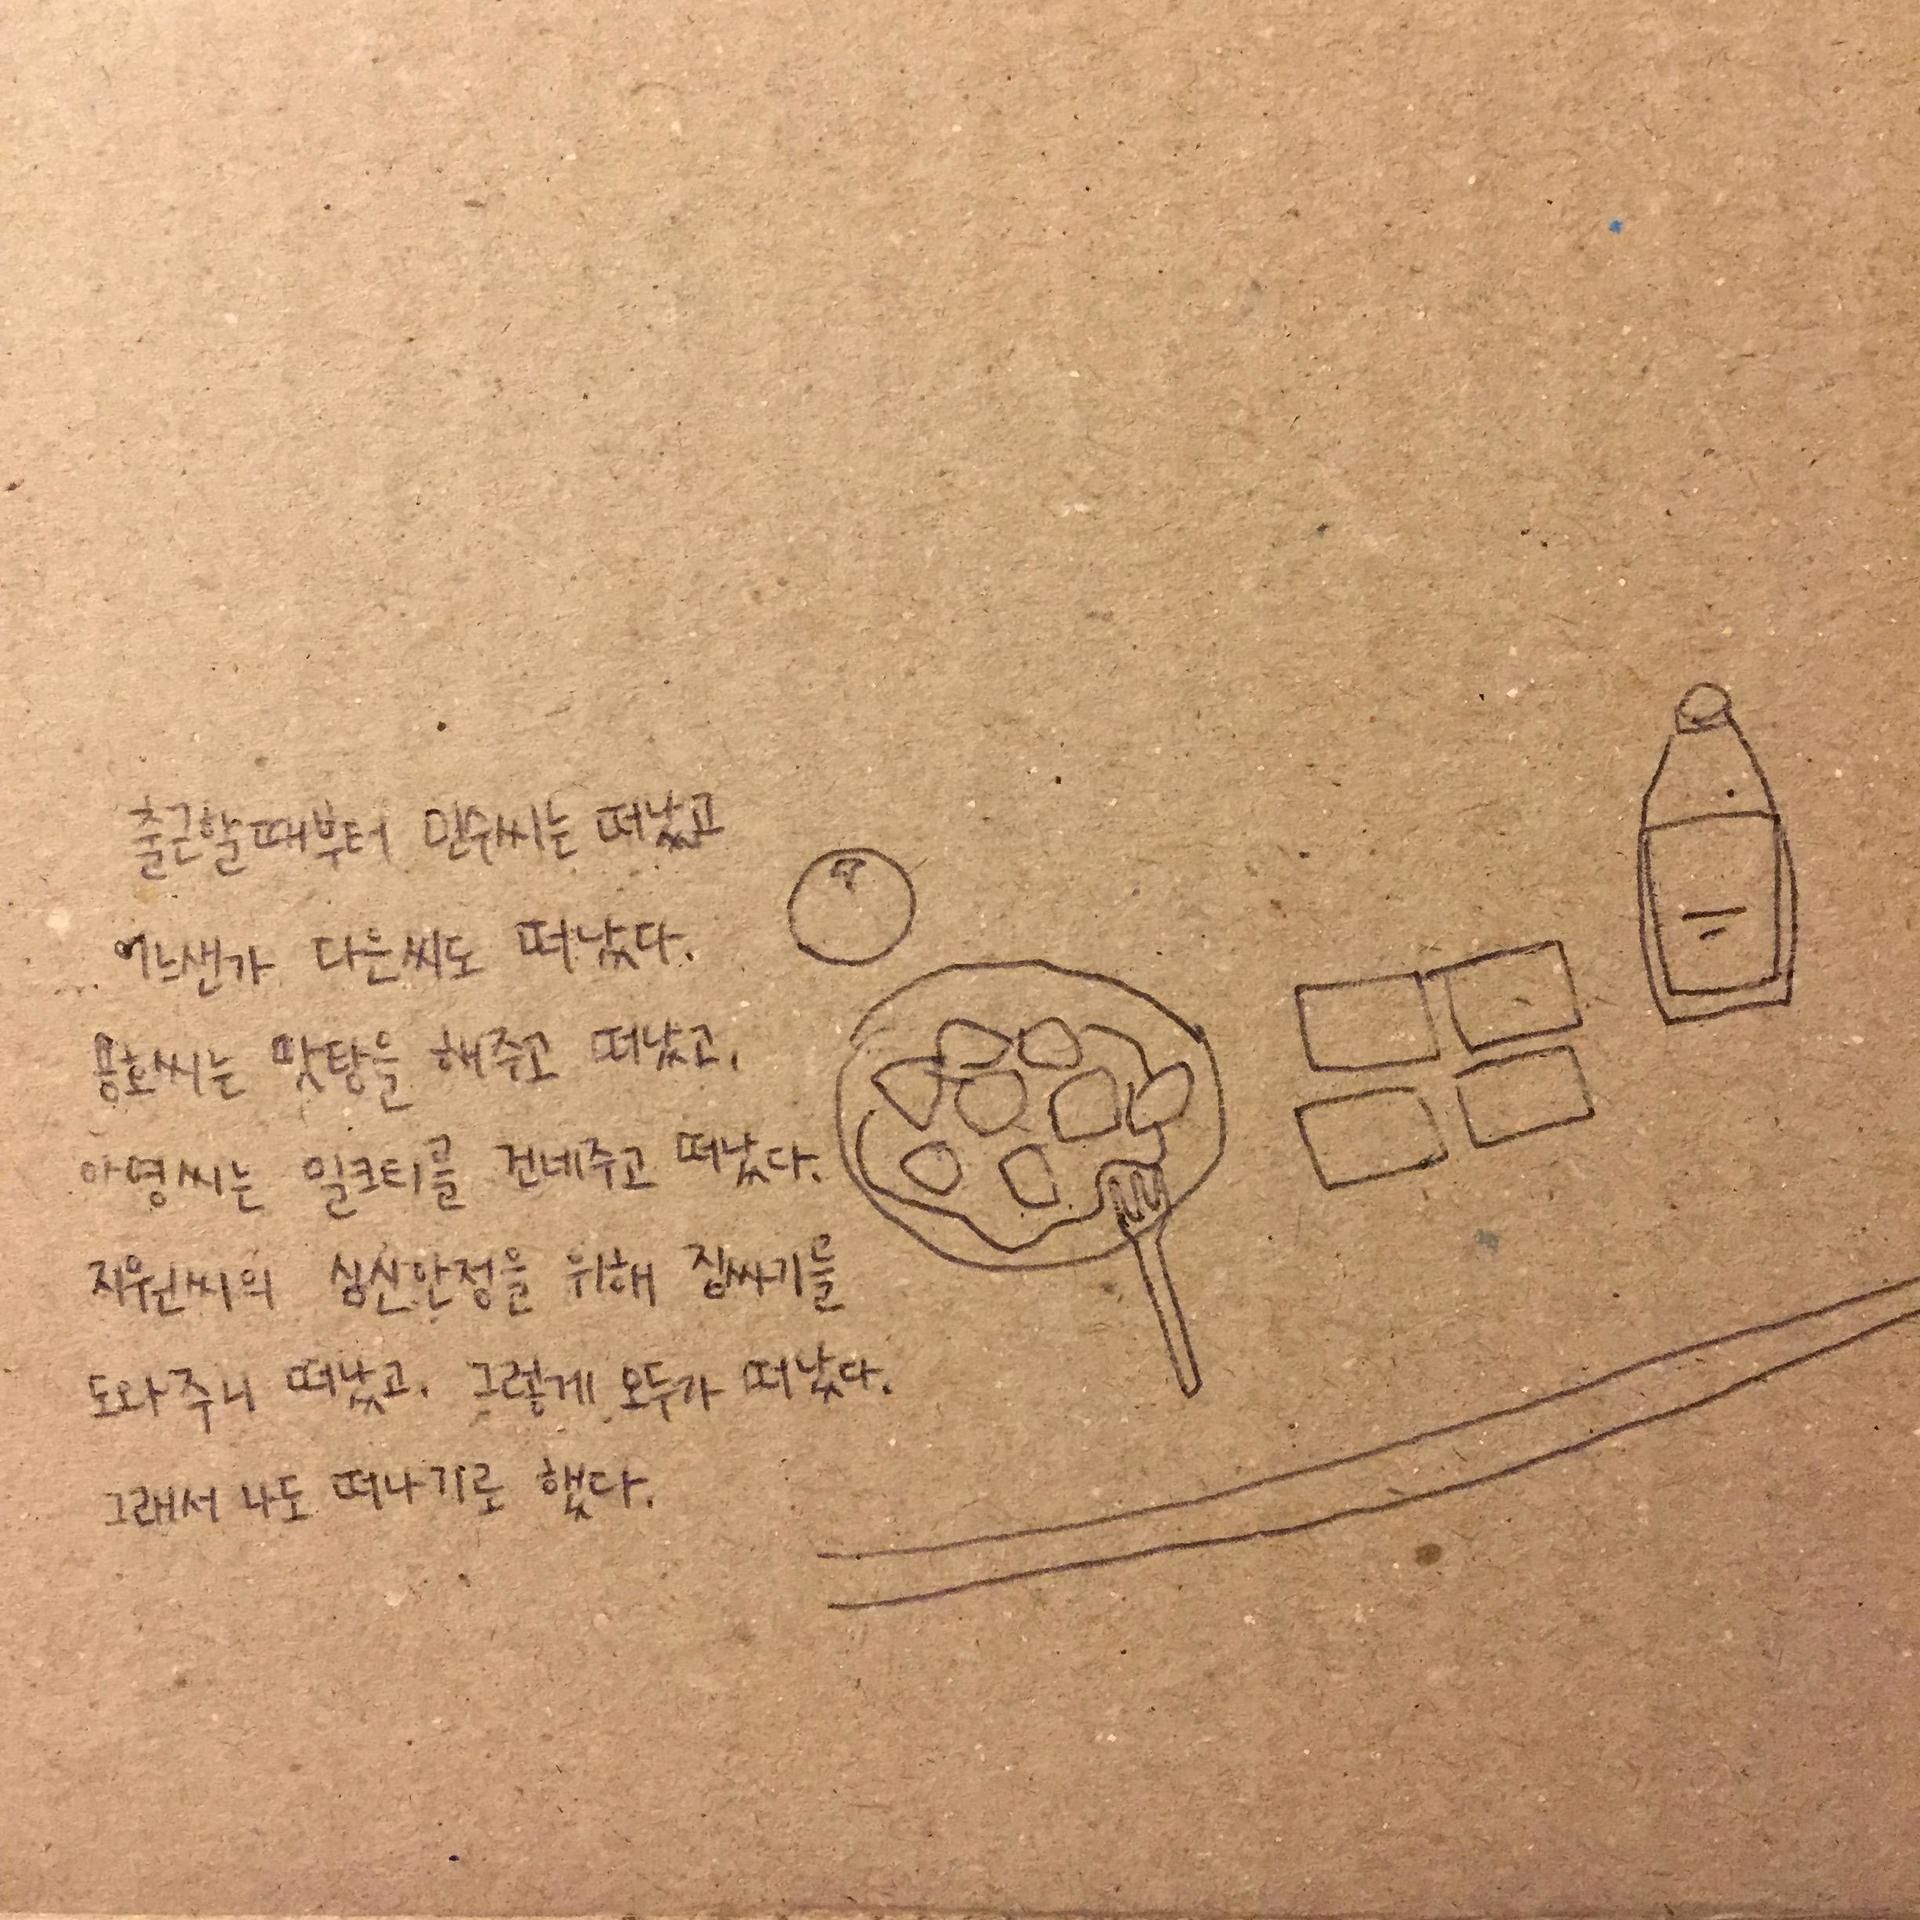 출근할때부터 민수씨는 떠났고
어느샌가 다은씨도 떠났다.
용호씨는 맛탕을 해주고 떠났고.
아영씨는 밀크티를 건네주고 떠났다.
지원씨의 심신안정을 위해 짐싸기를
도와주니 떠났고. 그렇게 모두가 떠났다.
그래서 나도 떠나기로 했다.